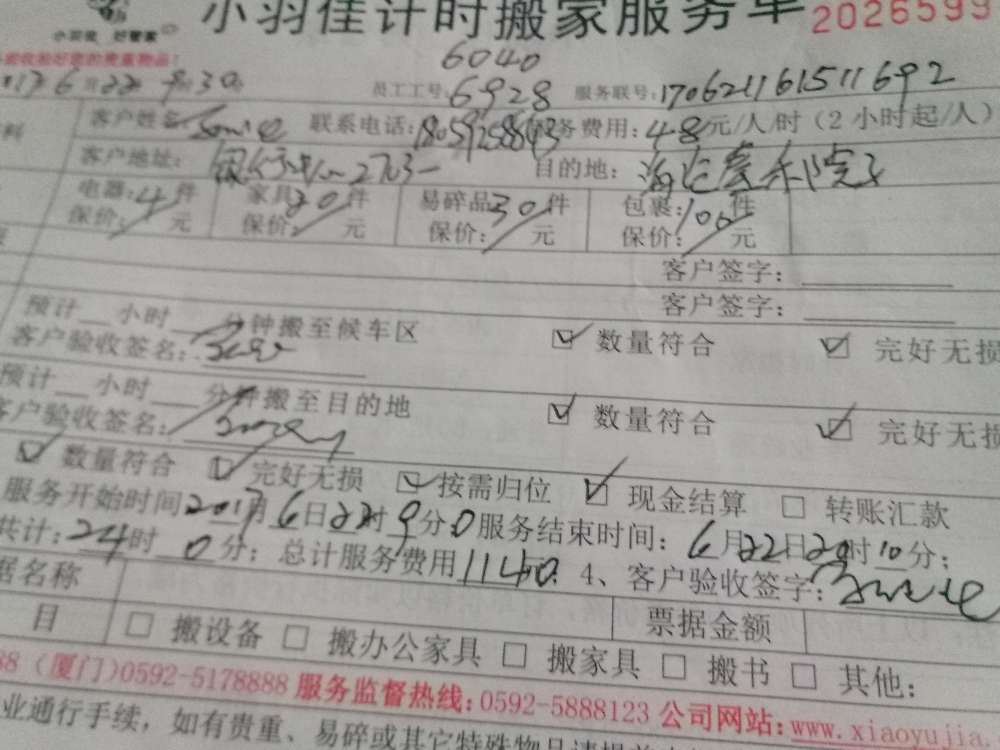 小羽佳计时搬家服务单 2026599
小羽佳 好管家
6040
6月22 9时30 员工工号:6928 服务联号:170621161511692
客户姓名 联系电话:18059258643 务费用:48元/人/时(2小时起/人)
客户地址: 2703 目的地:
电器:4件 家具20件 易碎品30件 包裹:100件
保价:/元 保价:/元 保价:/元 保价:/元
客户签字:
客户签字:
预计__小时__分钟搬至候车区 ☑数量符合 ☑完好无损
客户验收签名:
预计__小时__分钟搬至目的地 ☑数量符合 ☑完好无损
客户验收签名:
☑数量符合 ☑完好无损 ☑按需归位 ☑现金结算 □转账汇款
服务开始时间2017 6日22时9分0服务结束时间:6月22日20时10分;
共计:24时0分;总计服务费用1140. 4、客户验收签字:
据名称 票据金额
目 □搬设备 □搬办公家具 □搬家具 □搬书 □其他:
88(厦门)0592-5178888 服务监督热线:0592-5888123 公司网站:www.xiaoyujia.
业通行手续,如有贵重、易碎或其它特殊物品请提前